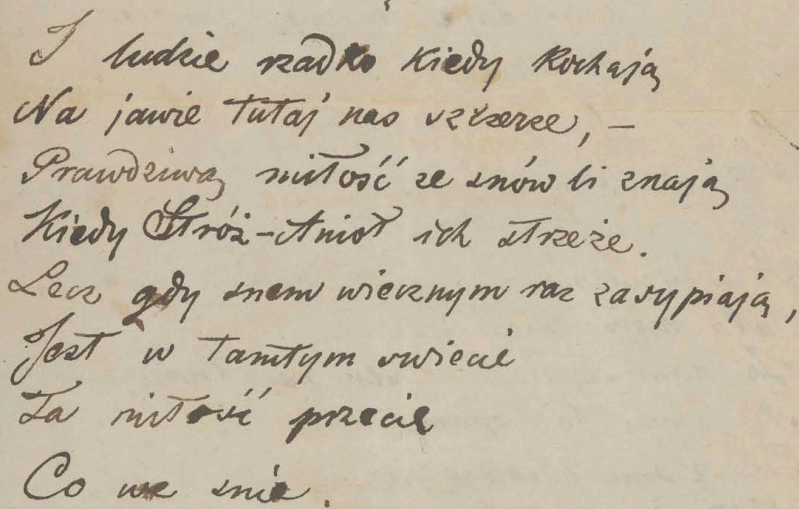 I ludzie rzadko kiedy kochają
Na jawie tutaj nas szczerze, –
Prawdziwą miłość ze snów li znają
Kiedy Stróż-Anioł ich strzeże.
Lecz gdy snem wiecznym raz zasypiają,
Jest w tamtym swiecie
Ta miłość przecie
Co we snie.